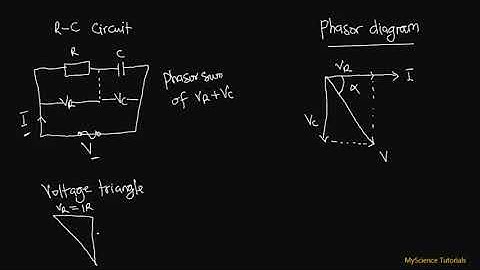 R-C Circuit
R
C
VR
VC
I
V
Phasor sum
of VR+VC
Phasor diagram
VR
I
α
VC
V
Voltage triangle
VR = IR
MyScience Tutorials